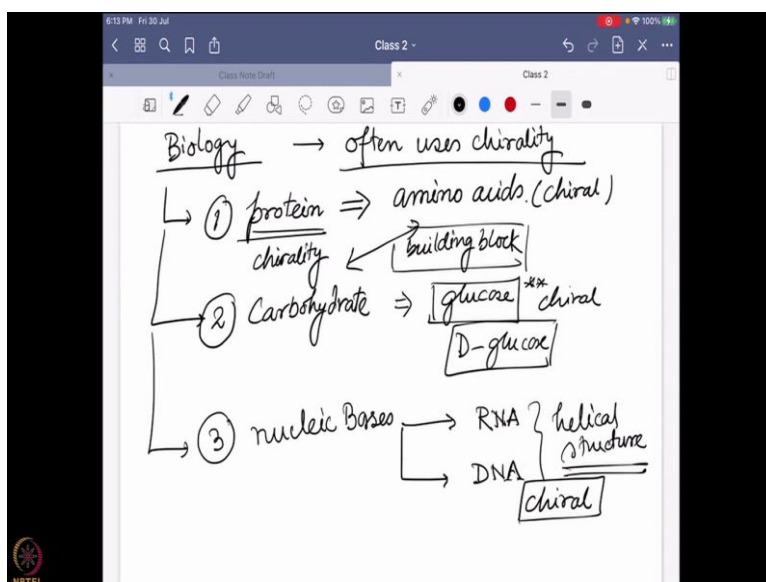 6:13 PM Fri 30 Jul
100%
Class 2
Class Note Draft
Class 2
Biology → often uses chirality
① protein ⇒ amino acids. (chiral)
chirality
building block
② Carbohydrate ⇒ glucose ** chiral
D-glucose
③ nucleic Bases → RNA } helical
structure
→ DNA
chiral
NPTEL